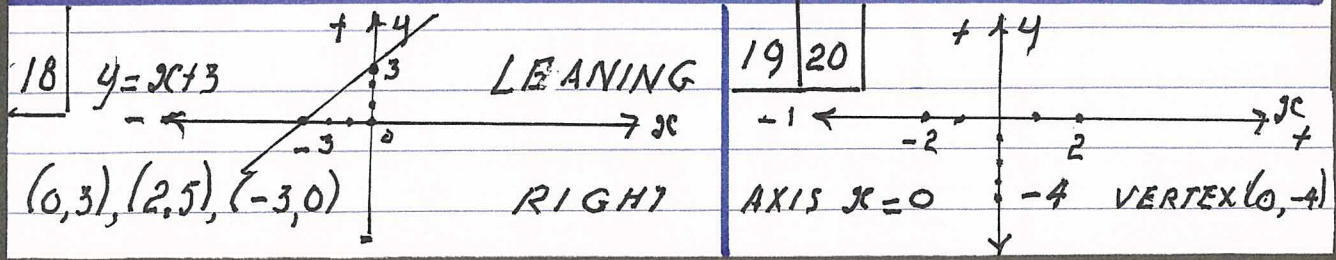 + y
18 y=x+3 3 LEANING
- -3 0 x
(0,3), (2,5), (-3,0) RIGHT
-
+ y
19 20
-1 -2 2 x +
AXIS x=0 -4 VERTEX (0,-4)